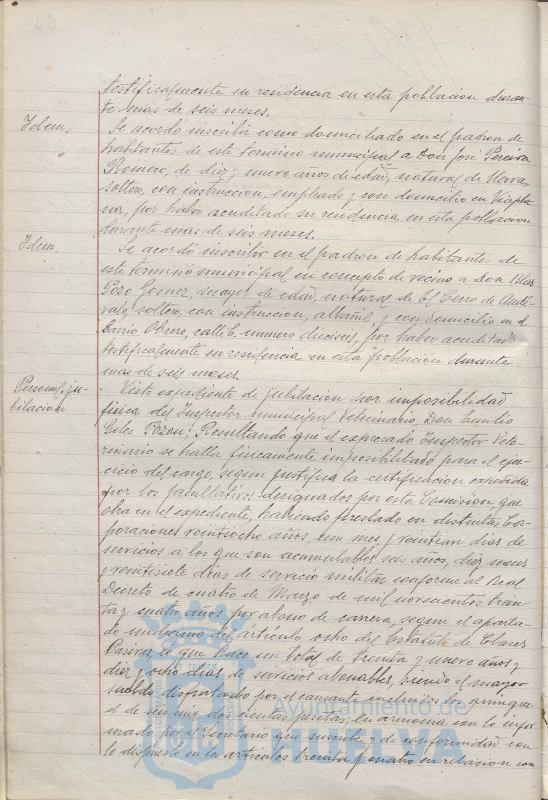 testificalmente su residencia en esta poblacion duran-
te mas de seis meses.
Idem.
Se acordó inscribir como domiciliado en el padron de
habitantes de este termino municipal a Don José Pereira
Romero, de diez y nueve años de edad, natural de Nerva,
soltero, con instruccion, empleado y con domicilio en
por haber acreditado su residencia en esta poblacion
durante mas de seis meses.
Idem
Se acordó inscribir en el padron de habitantes de
este termino municipal en concepto de vecino a Don Blas
Pozo Gomez, mayor de edad, natural de El Cerro de Ande-
valo, soltero, con instruccion, albañil, y con domicilio en el
Barrio Obrero, calle E. numero dieciseis, por haber acreditado
testificalmente su residencia en esta población durante
mas de seis meses.
Personal, ju-
bilacion
Visto expediente de jubilacion por imposibilidad
fisica del Inspector municipal Veterinario, Don Emilio
Giles Pozon; Resultando que el expresado Inspector Vete-
rinario se halla fisicamente imposibilitado para el ejer-
cicio del cargo, segun justifica la certificacion expedida
por los facultativos designados por esta Comision que
obra en el expediente, habiendo prestado en distintas Cor-
poraciones veintiocho años, un mes y veintiun dias de
servicios a los que son acumulables seis años, diez meses
y veintisiete dias de servicio militar conforme al Real
Decreto de cuatro de Marzo de mil novecientos trein-
ta y cuatro años por abono de carrera, segun el aparta-
do undecimo del artículo ocho del Estatuto de Clases
Pasivas, lo que hace un total de treinta y nueve años y
diez y ocho dias de servicios abonables, siendo el mayor
sueldo disfrutado por el causante incluidos los quinque-
el de seis mil doscientas pesetas; En armonia con lo infor-
mado por el Secretario que suscribe y de conformidad con
lo dispuesto en los artículos treinta y cuatro en relacion con
Ayuntamiento de
HUELVA